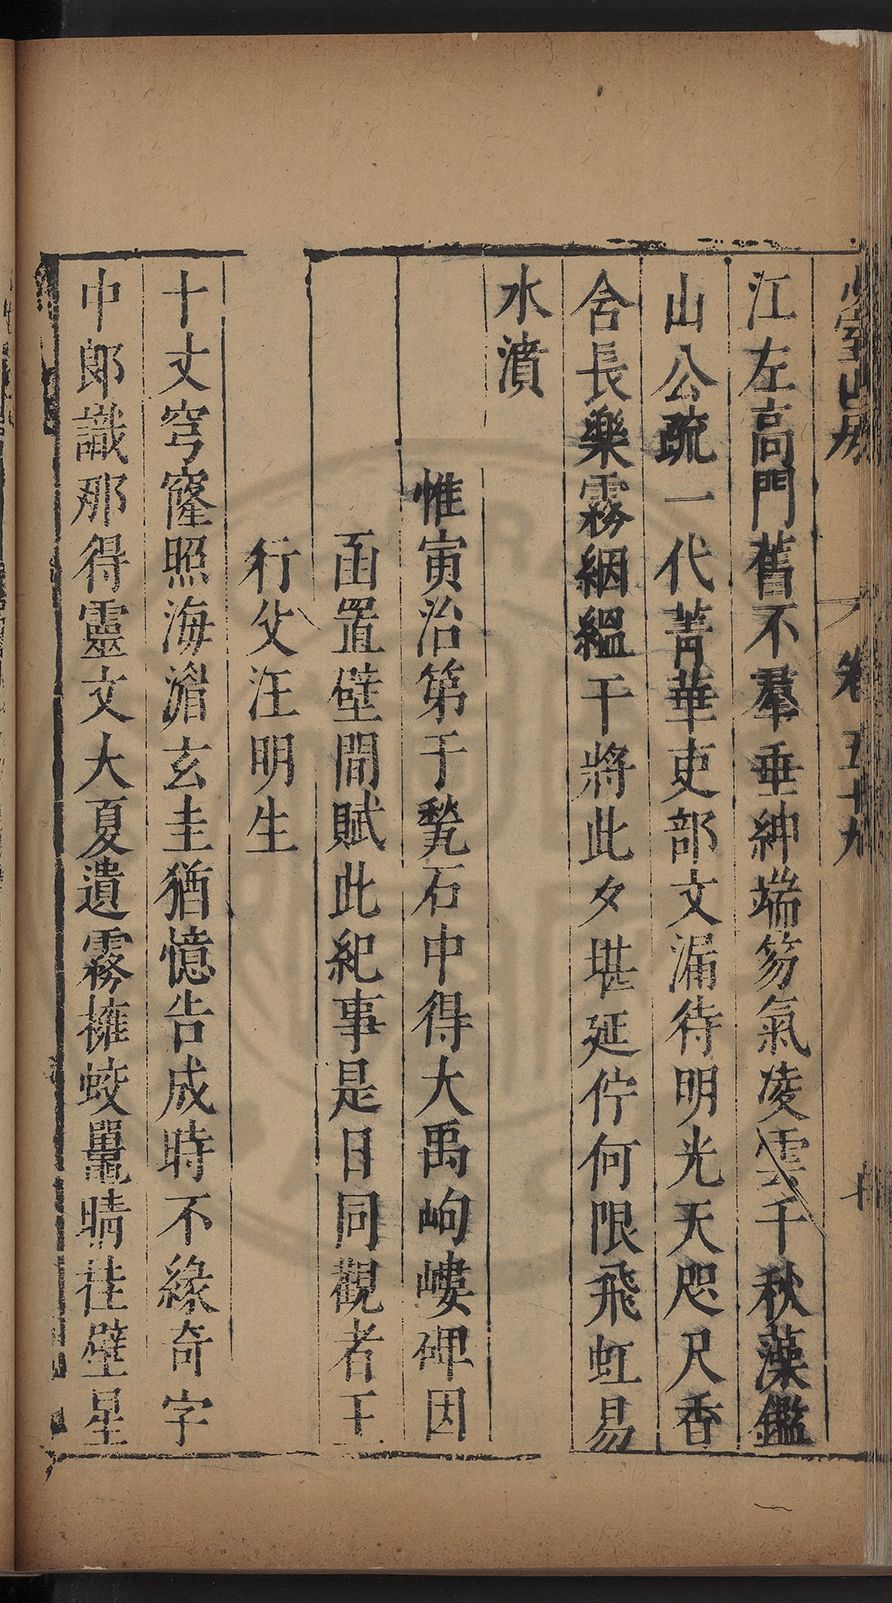 少室山房
卷五十九
十
江左高門舊不羣垂紳端笏氣凌雲千秋藻鑑
山公疏一代菁華吏部文漏待明光天咫尺香
含長樂霧絪縕干將此夕堪延佇何限飛虹易
水濆
惟寅治第于甃石中得大禹岣嶁碑因
函置壁間賦此紀事是日同觀者王
行父汪明生
十丈穹窿照海湄玄圭猶憶告成時不緣奇字
中郎識那得靈文大夏遺霧擁蛟鼉晴徙壁星